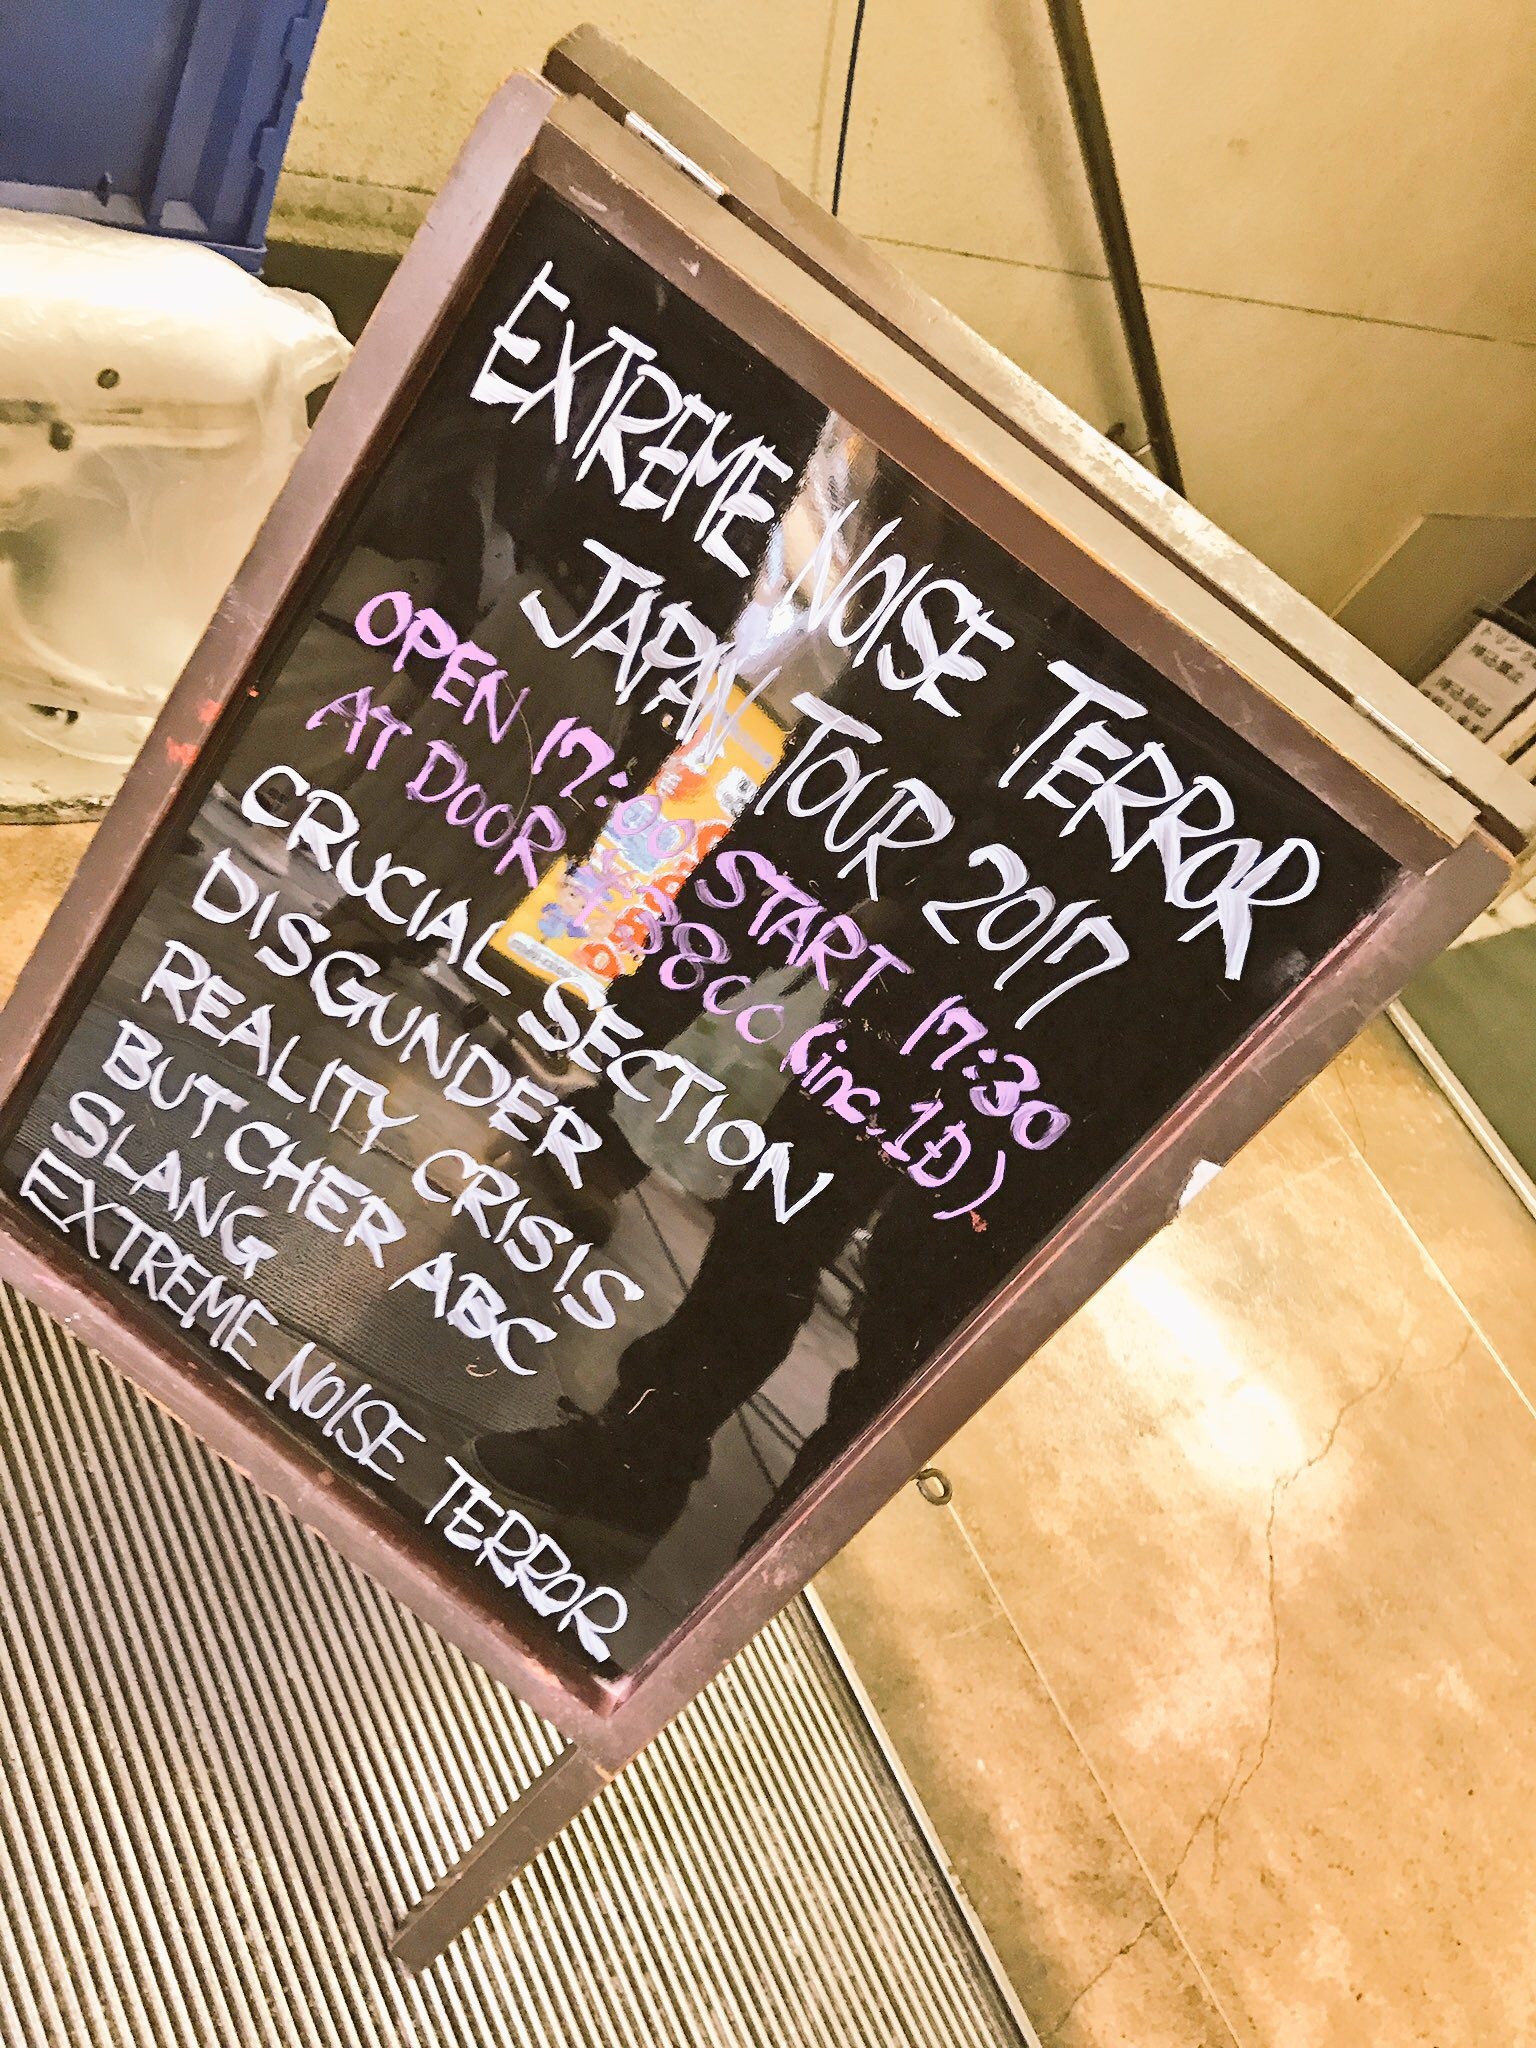 EXTREME NOISE TERROR
JAPAN TOUR 2017
OPEN 17:00 START 17:30
AT DOOR ¥3800 (inc.1D)
CRUCIAL SECTION
DISGUNDER
REALITY CRISIS
BUTCHER ABC
SLANG
EXTREME NOISE TERROR